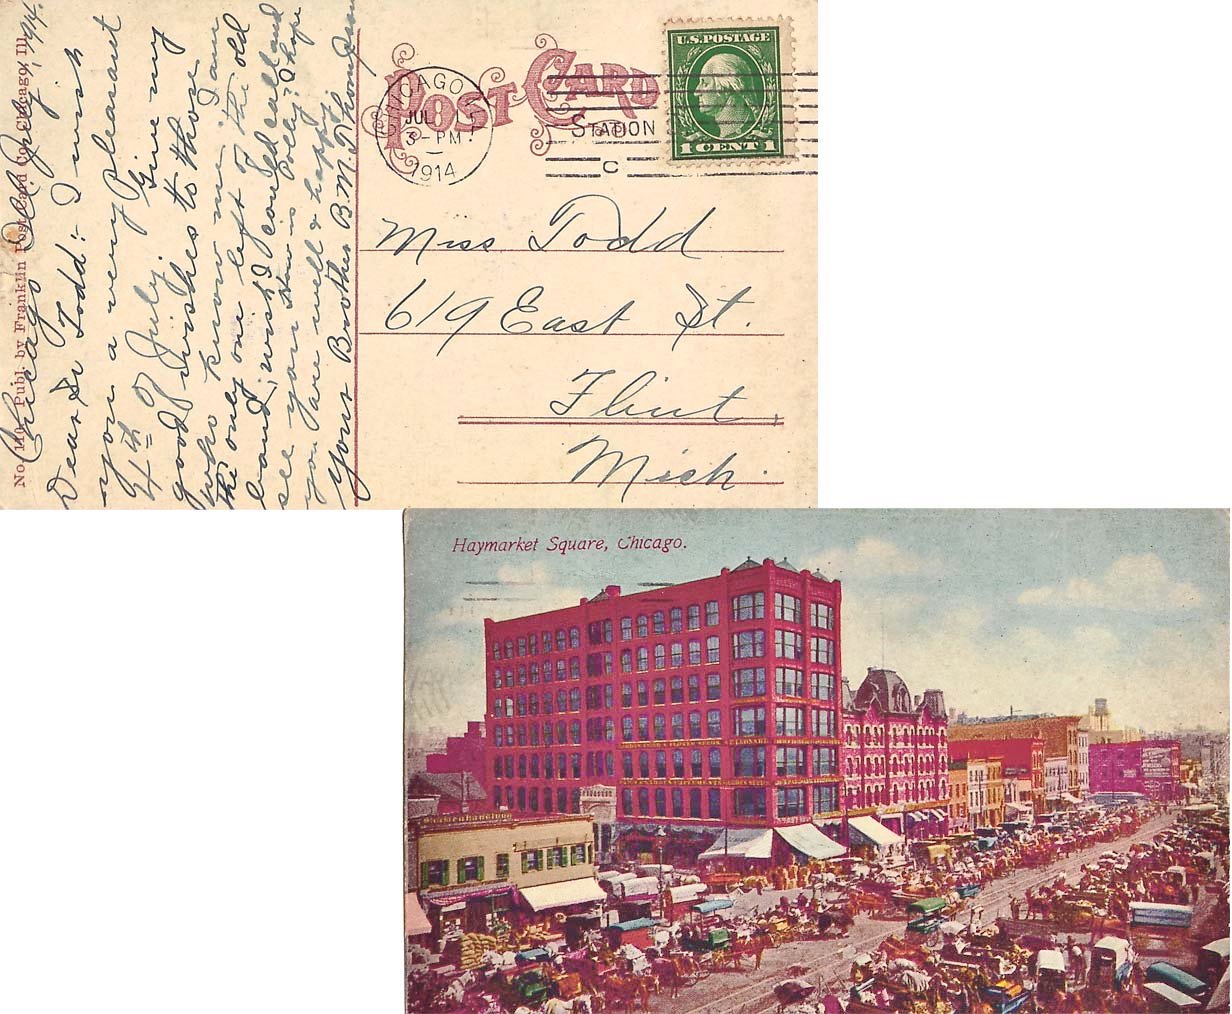 No. 110. Publ. by Franklin Post Card Co., Chicago, Ill.
Chicago Ill. July 1, 1914.
Dear Sr Todd:- I wish
you a very pleasant
4th of July. Give my
good wishes to those
who know me. I am
the only one left of the old
band, wish I could call and
see you. How is Polly? I hope
you are well & happy
Your Brother B. M. Thompson
POST CARD
CHICAGO, ILL.
JUL 1
3-PM
1914
STATION
C
U.S. POSTAGE
1 CENT 1
Miss Todd
619 East St.
Flint,
Mich.
Haymarket Square, Chicago.